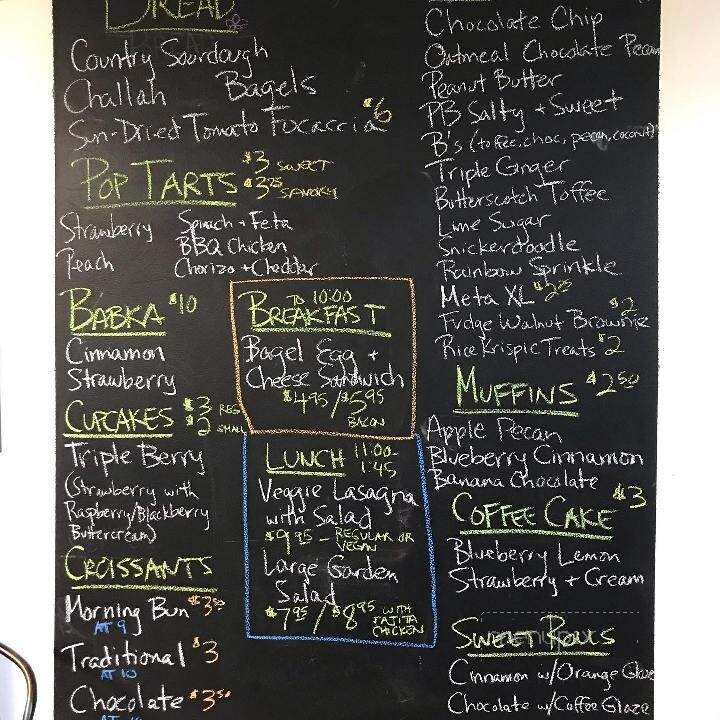 BREAD
Country Sourdough
Challah Bagels
Sun-Dried Tomato Focaccia $6
POP TARTS $3 SWEET
$3.25 SAVORY
Strawberry Spinach + Feta
Peach BBQ Chicken
Chorizo + Cheddar
BABKA $10
Cinnamon
Strawberry
CUPCAKES $3 REG
$2 SMALL
Triple Berry
(Strawberry with
Raspberry/Blackberry
Buttercream)
CROISSANTS
Morning Bun $3.50
AT 9
Traditional $3
AT 10
Chocolate $3.50
AT 10
TO 10:00
BREAKFAST
Bagel Egg +
Cheese Sandwich
$4.95/$5.95
BACON
LUNCH 11:00-
1:45
Veggie Lasagna
with Salad
$9.95 - REGULAR OR
VEGAN
Large Garden
Salad
$7.95/$8.95 WITH
FAJITA
CHICKEN
Chocolate Chip
Oatmeal Chocolate Pecan
Peanut Butter
PB Salty + Sweet
B's (toffee, choc, pecan, coconut)
Triple Ginger
Butterscotch Toffee
Lime Sugar
Snickerdoodle
Rainbow Sprinkle
Meta XL $2.25
Fudge Walnut Brownie $2
Rice Krispie Treats $2
MUFFINS $2.50
Apple Pecan
Blueberry Cinnamon
Banana Chocolate
COFFEE CAKE $3
Blueberry Lemon
Strawberry + Cream
SWEET ROLLS
Cinnamon w/Orange Glaze
Chocolate w/Coffee Glaze